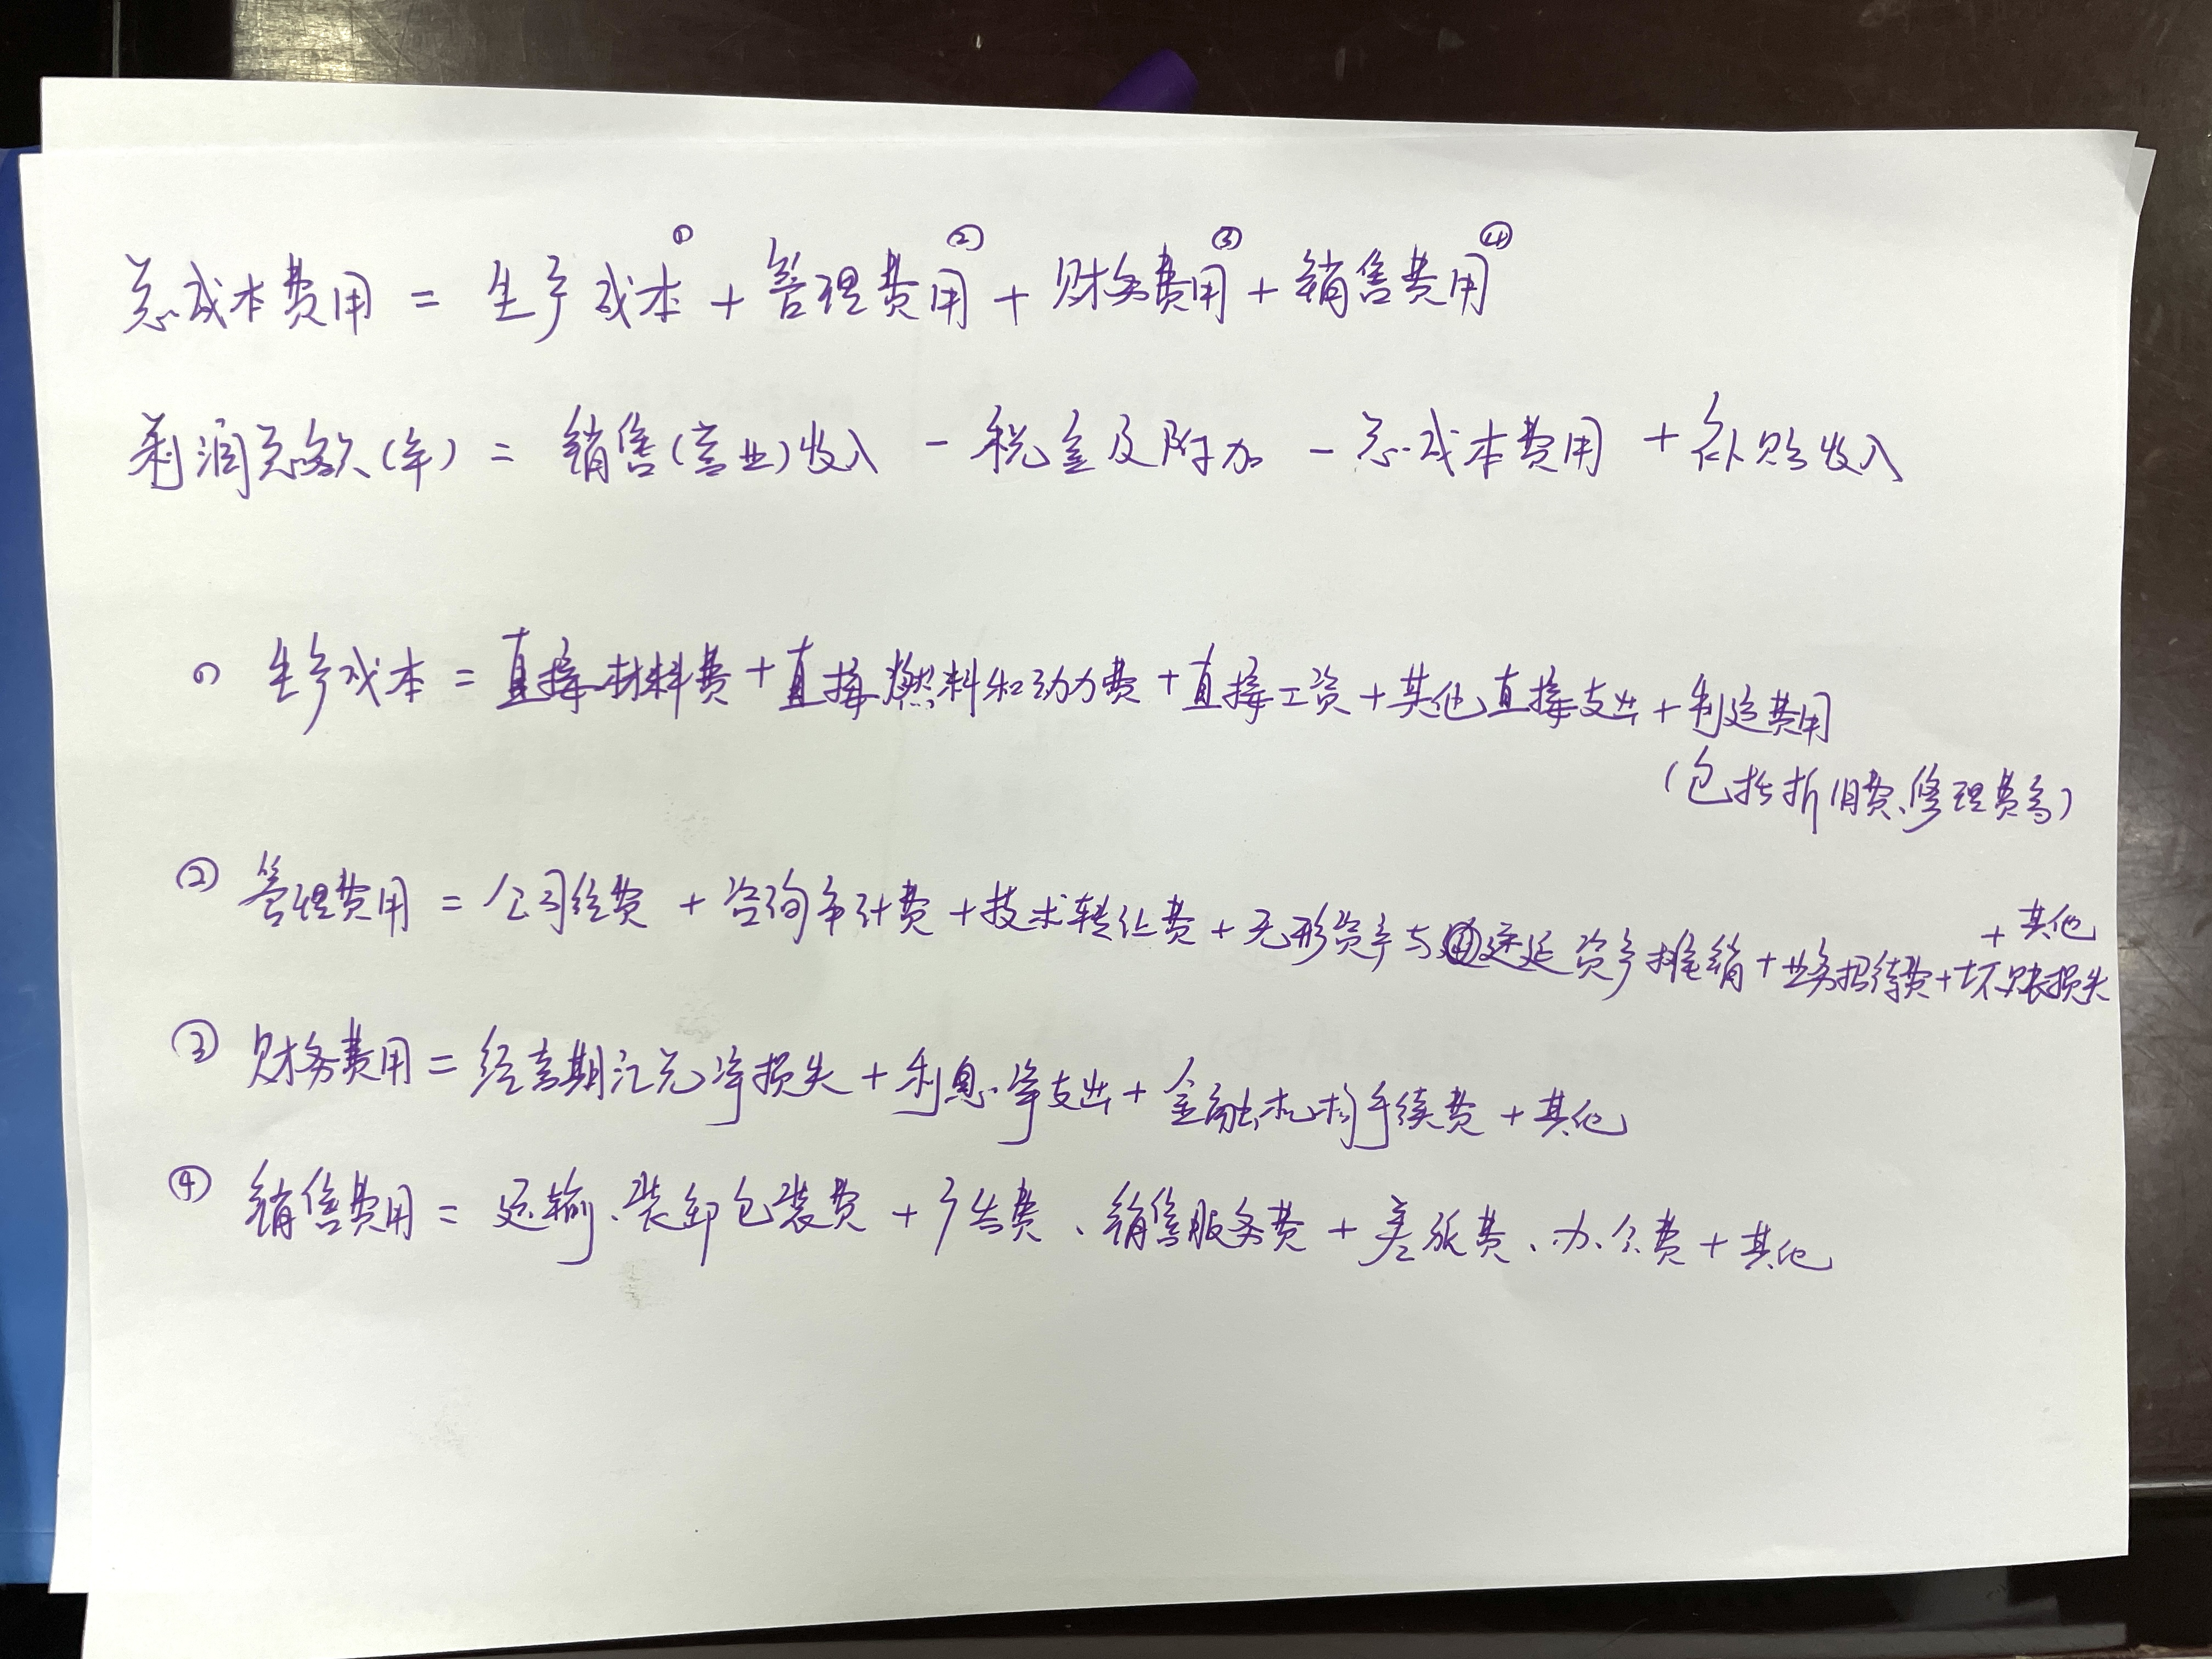 总成本费用 = 生产成本① + 管理费用② + 财务费用③ + 销售费用④
利润总额(年) = 销售(营业)收入 - 税金及附加 - 总成本费用 + 补贴收入
① 生产成本 = 直接材料费 + 直接燃料和动力费 + 直接工资 + 其他直接支出 + 制造费用
(包括折旧费、修理费等)
② 管理费用 = 公司经费 + 咨询审计费 + 技术转让费 + 无形资产与递延资产摊销 + 业务招待费 + 坏账损失 + 其他
③ 财务费用 = 经营期汇兑净损失 + 利息净支出 + 金融机构手续费 + 其他
④ 销售费用 = 运输、装卸包装费 + 广告费、销售服务费 + 差旅费、办公费 + 其他